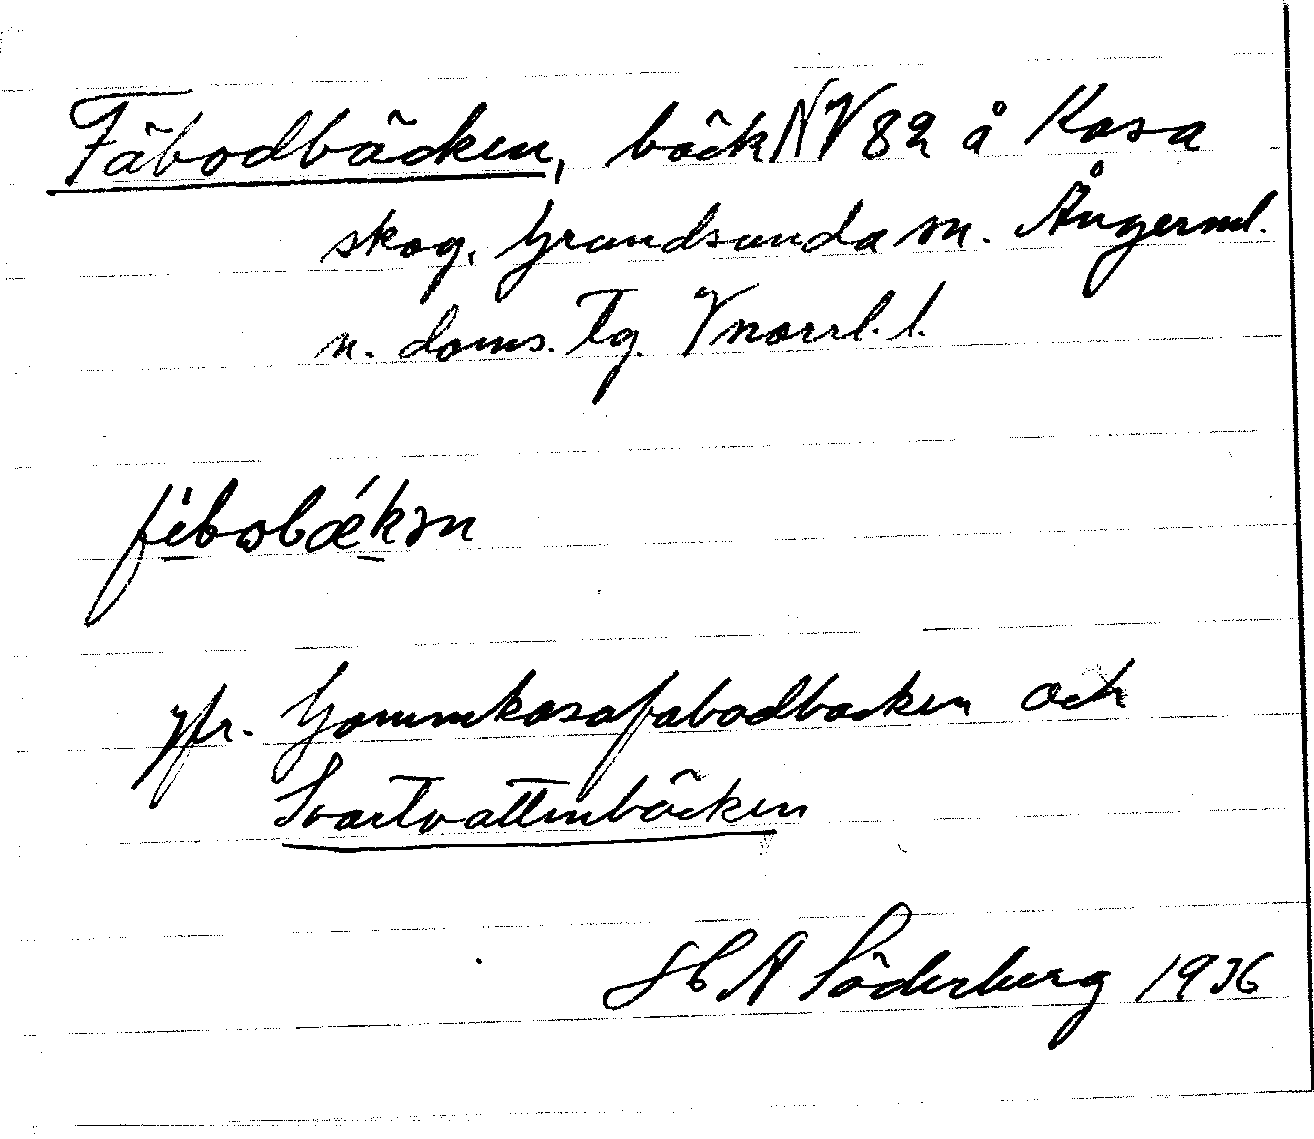 Fäbodbäcken, bäck NV 82 å Kasa
skog, Grundsunda sn. Ångerml.
n. doms. Tg. Vnorrl. l.
fèbobǽkən
jfr. Gammkasafäbodbäcken och
Svartvattenbäcken
H A Söderberg 1936